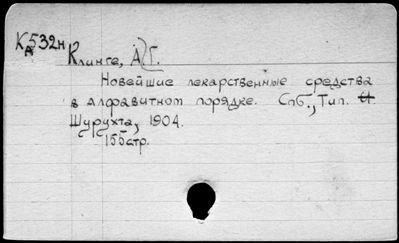 КА532н
Клинге, А.Г.
Новейшие лекарственные средства
в алфавитном порядке. Спб., Тип. И.
Шурухта, 1904.
155стр.